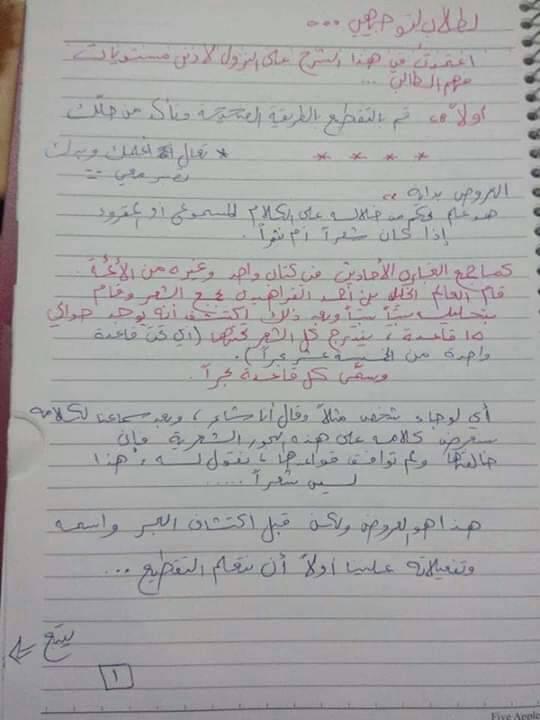 لطلاب التوجيهي ...
اعتمدتُ في هذا الشرح على النزول لأدنى مستويات
فهم الطالب ...
أولاً: قم بالتقطيع بالطريقة الصحيحة وتأكد من حلّك
* * * * * تعال أفهمك وبدك
تصير معي
العروض بداية ..
هو علم نحكم من خلاله على الكلام المسموع أو المقروء
إذا كان شعراً أم نثراً.
كما جمع العباره الأحاديث في كتاب واحد وغيره من الأئمة
قام العالم الخليل بن أحمد الفراهيدي بجمع الشعر وقام
بتحليله بيتاً بيتاً وبعد ذلك اكتشف أنه يوجد حوالي
١٥ قاعدة، يندرج كل الشعر تحتها (أي تحت قاعدة
واحدة من الخمسة عشر بحراً).
وسمّى كل قاعدة بحراً.
أي لو جاء شخص مثلاً وقال أنا شاعر، وبعد سماعنا لكلامه
سنعرض كلامه على هذه البحور الشعرية فإن
خالفها ولم توافق قواعدها، نقول له: هذا
ليس شعراً .....
هذا هو العروض ولكن قبل اكتشاف البحر واسمه
وتفعيلاته علينا أولاً أن نتعلم التقطيع ...
يتبع
١
Five Apple